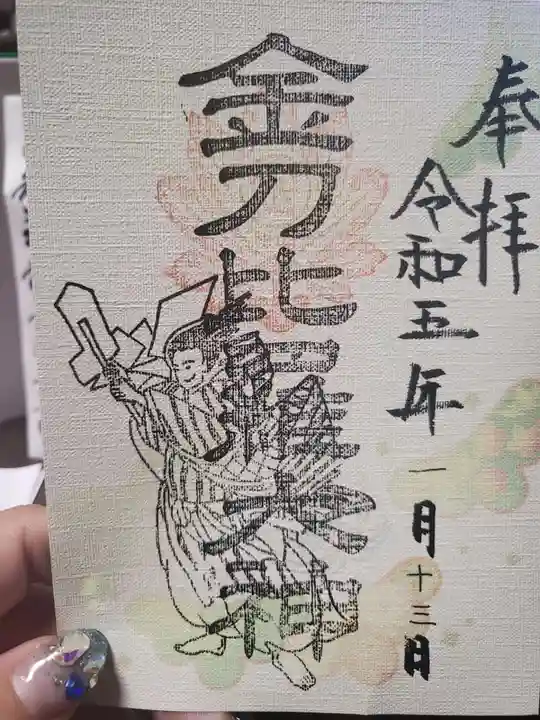 奉拝
令和五年一月十三日
金刀比羅大神